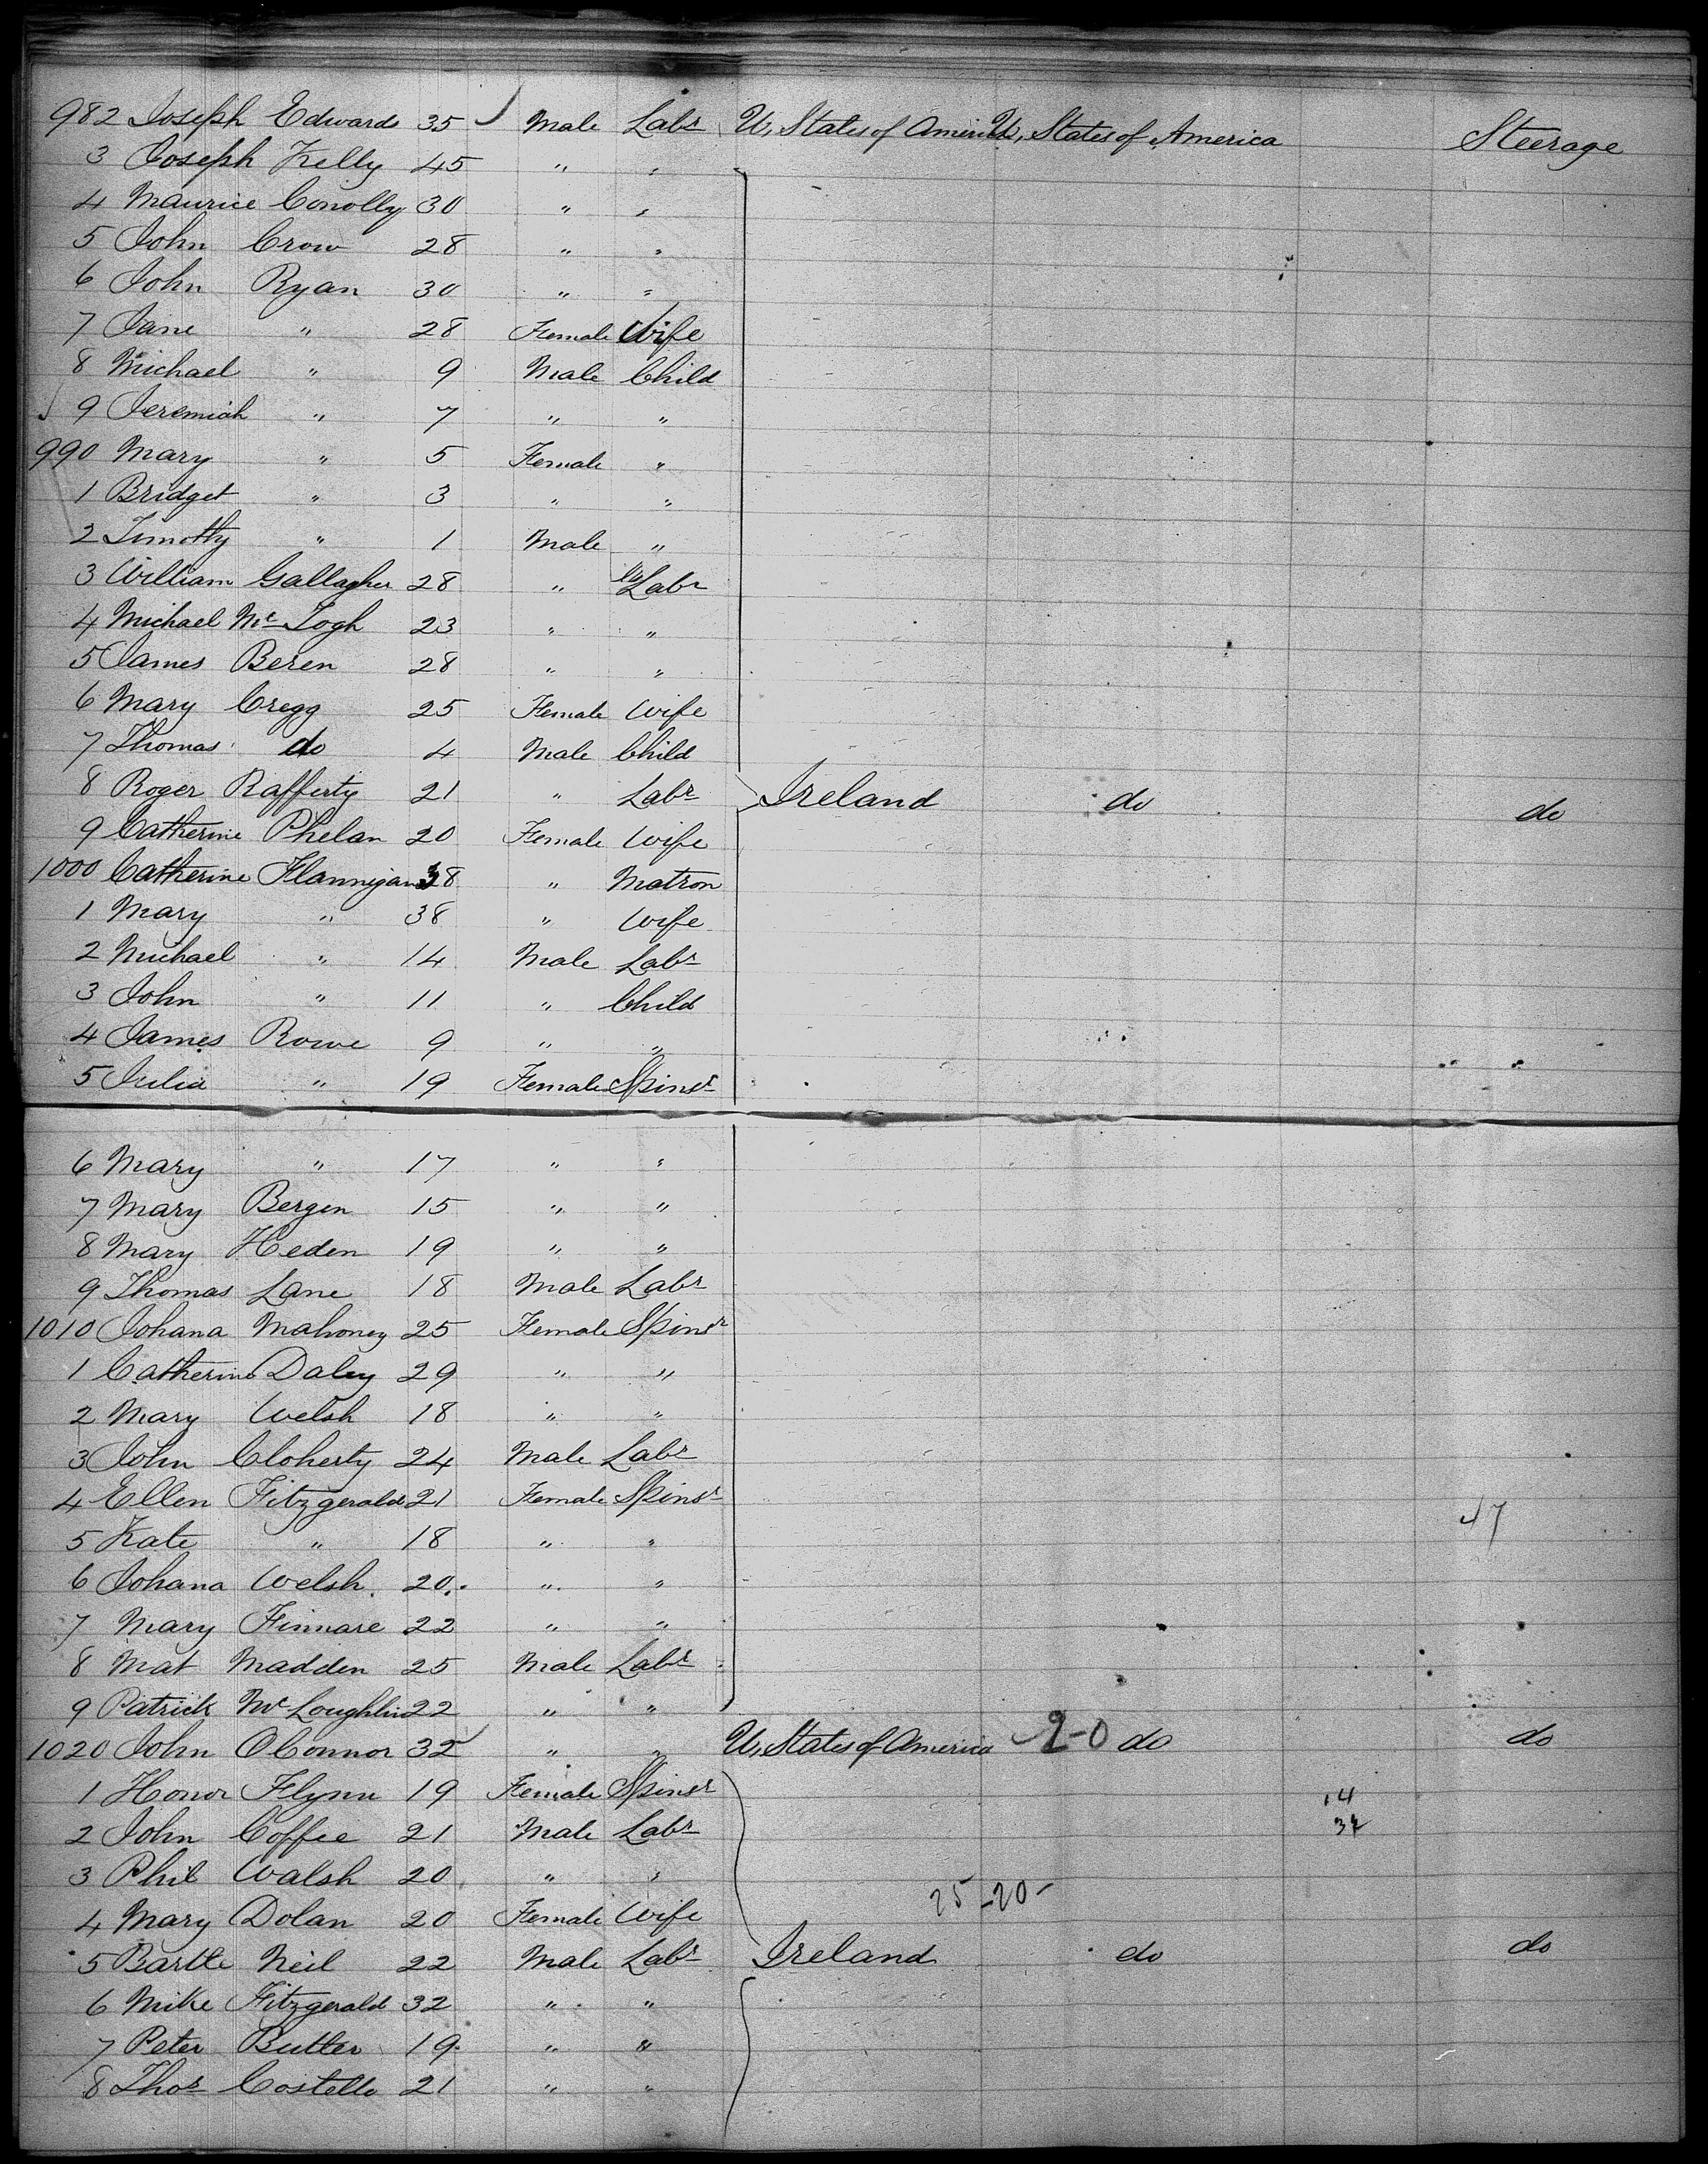 982 Joseph Edwards 35 Male Labr U, States of America U, States of America Steerage
3 Joseph Kelly 45 " "
4 Maurice Conolly 30 " "
5 John Crow 28 " "
6 John Ryan 30 " "
7 Jane " 28 Female Wife
8 Michael " 9 Male Child
9 Jeremiah " 7 " "
990 Mary " 5 Female "
1 Bridget " 3 " "
2 Timothy " 1 Male "
3 William Gallagher 28 " Labr
4 Michael Mc Logh 23 " "
5 James Beren 28 " "
6 Mary Cregg 25 Female Wife
7 Thomas do 4 Male Child
8 Roger Rafferty 21 " Labr Ireland do do
9 Catherine Phelan 20 Female Wife
1000 Catherine Flannigan 38 " Matron
1 Mary " 38 " Wife
2 Michael " 14 Male Labr
3 John " 11 " Child
4 James Rowe 9 " "
5 Julia " 19 Female Spinsr
6 Mary " 17 " "
7 Mary Bergen 15 " "
8 Mary Heden 19 " "
9 Thomas Lane 18 Male Labr
1010 Johana Mahoney 25 Female Spinsr
1 Catherine Daley 29 " "
2 Mary Welsh 18 " "
3 John Cloherty 24 Male Labr
4 Ellen Fitzgerald 21 Female Spinsr 47
5 Kate " 18 " "
6 Johana Welsh 20 " "
7 Mary Finnare 22 " "
8 Mat Madden 25 Male Labr
9 Patrick Mc Loughlin 22 " "
1020 John OConnor 32 " " U, States of America 2-0 do do
1 Honor Flynn 19 Female Spinsr 14
2 John Coffee 21 Male Labr 34
3 Phil Walsh 20 " "
4 Mary Dolan 20 Female Wife 25-20-
5 Bartle Neil 22 Male Labr Ireland do do
6 Mike Fitzgerald 32 " "
7 Peter Butler 19 " "
8 Thos Costello 21 " "